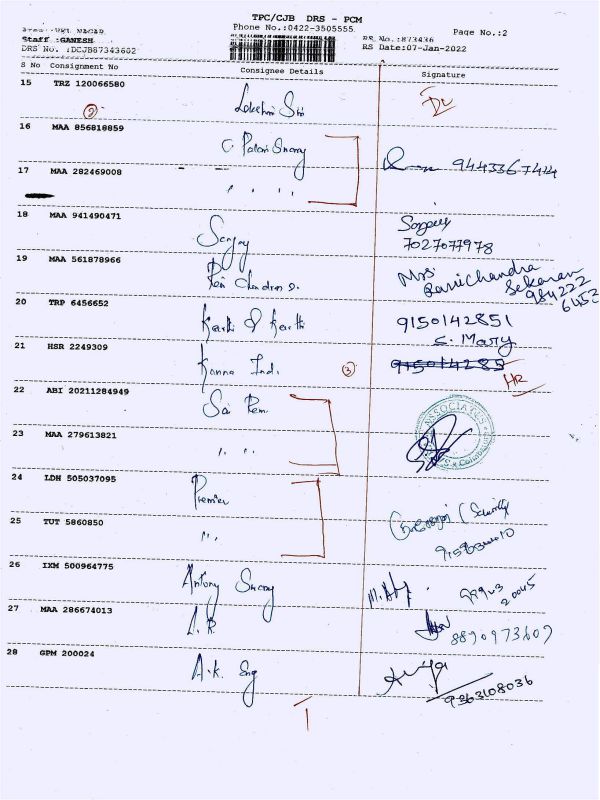 TPC/CJB DRS - PCM
Phone No.:0422-3505555
Staff :GANESH
DRS No. :DCJB87343602
RS No.:873436
RS Date:07-Jan-2022
Page No.:2
S No Consignment No Consignee Details Signature
15 TRZ 120066580
Lakshmi Sri
2
16 MAA 856818859
C. Palani Swamy
9443367414
17 MAA 282469008
" " " "
18 MAA 941490471
Sanjay
7027077978
19 MAA 561878966
Mrs
Ravichandra
Sekaran
984222
6452
20 TRP 6456652
Karthi & Karthi
9150142851
S. Mary
21 HSR 2249309
Kanna Ind.
3
915014285
22 ABI 20211284949
Sai Rem
ASSOCIATES
23 MAA 279613821
" " "
24 LDH 505037095
Premier
(Security)
25 TUT 5860850
" "
26 IXM 500964775
Antony Swamy
27 MAA 286674013
A. R.
8890973609
28 GPM 200024
A.K. Eng
9363108036